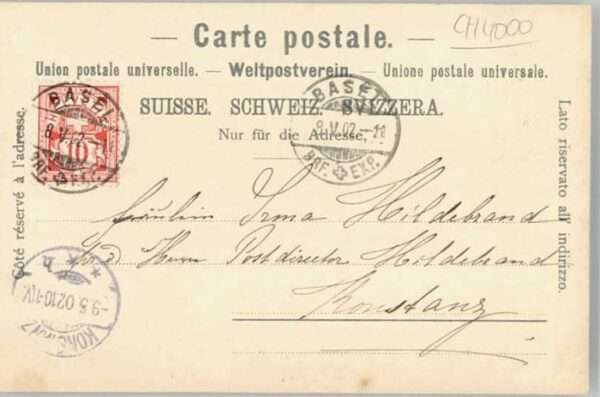 CH4000
— Carte postale. —
Union postale universelle. — Weltpostverein. — Unione postale universale.
SUISSE. SCHWEIZ. SVIZZERA.
Nur für die Adresse.
Côté réservé à l'adresse.
Lato riservato all' indirizzo.
BASEL
8.V.02
10
BRF. EXP.
BASEL
8.V.02.-11
BRF. EXP.
Fräulein Irma Hildebrand
Herrn Postdirector Hildebrand
Konstanz
-9.5.02.10-11V.
KONSTANZ